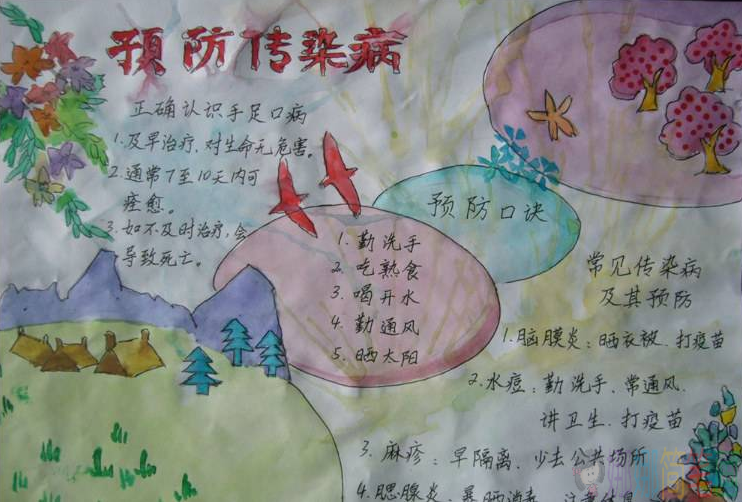 预防传染病
正确认识手足口病
1.及早治疗,对生命无危害。
2.通常7至10天内可
痊愈。
3.如不及时治疗,会
导致死亡。
预防口诀
1.勤洗手
2.吃熟食
3.喝开水
4.勤通风
5.晒太阳
常见传染病
及其预防
1.脑膜炎:晒衣被、打疫苗
2.水痘:勤洗手、常通风、
讲卫生、打疫苗
3.麻疹:早隔离、少去公共场所
4.腮腺炎:暴晒消毒、注意休